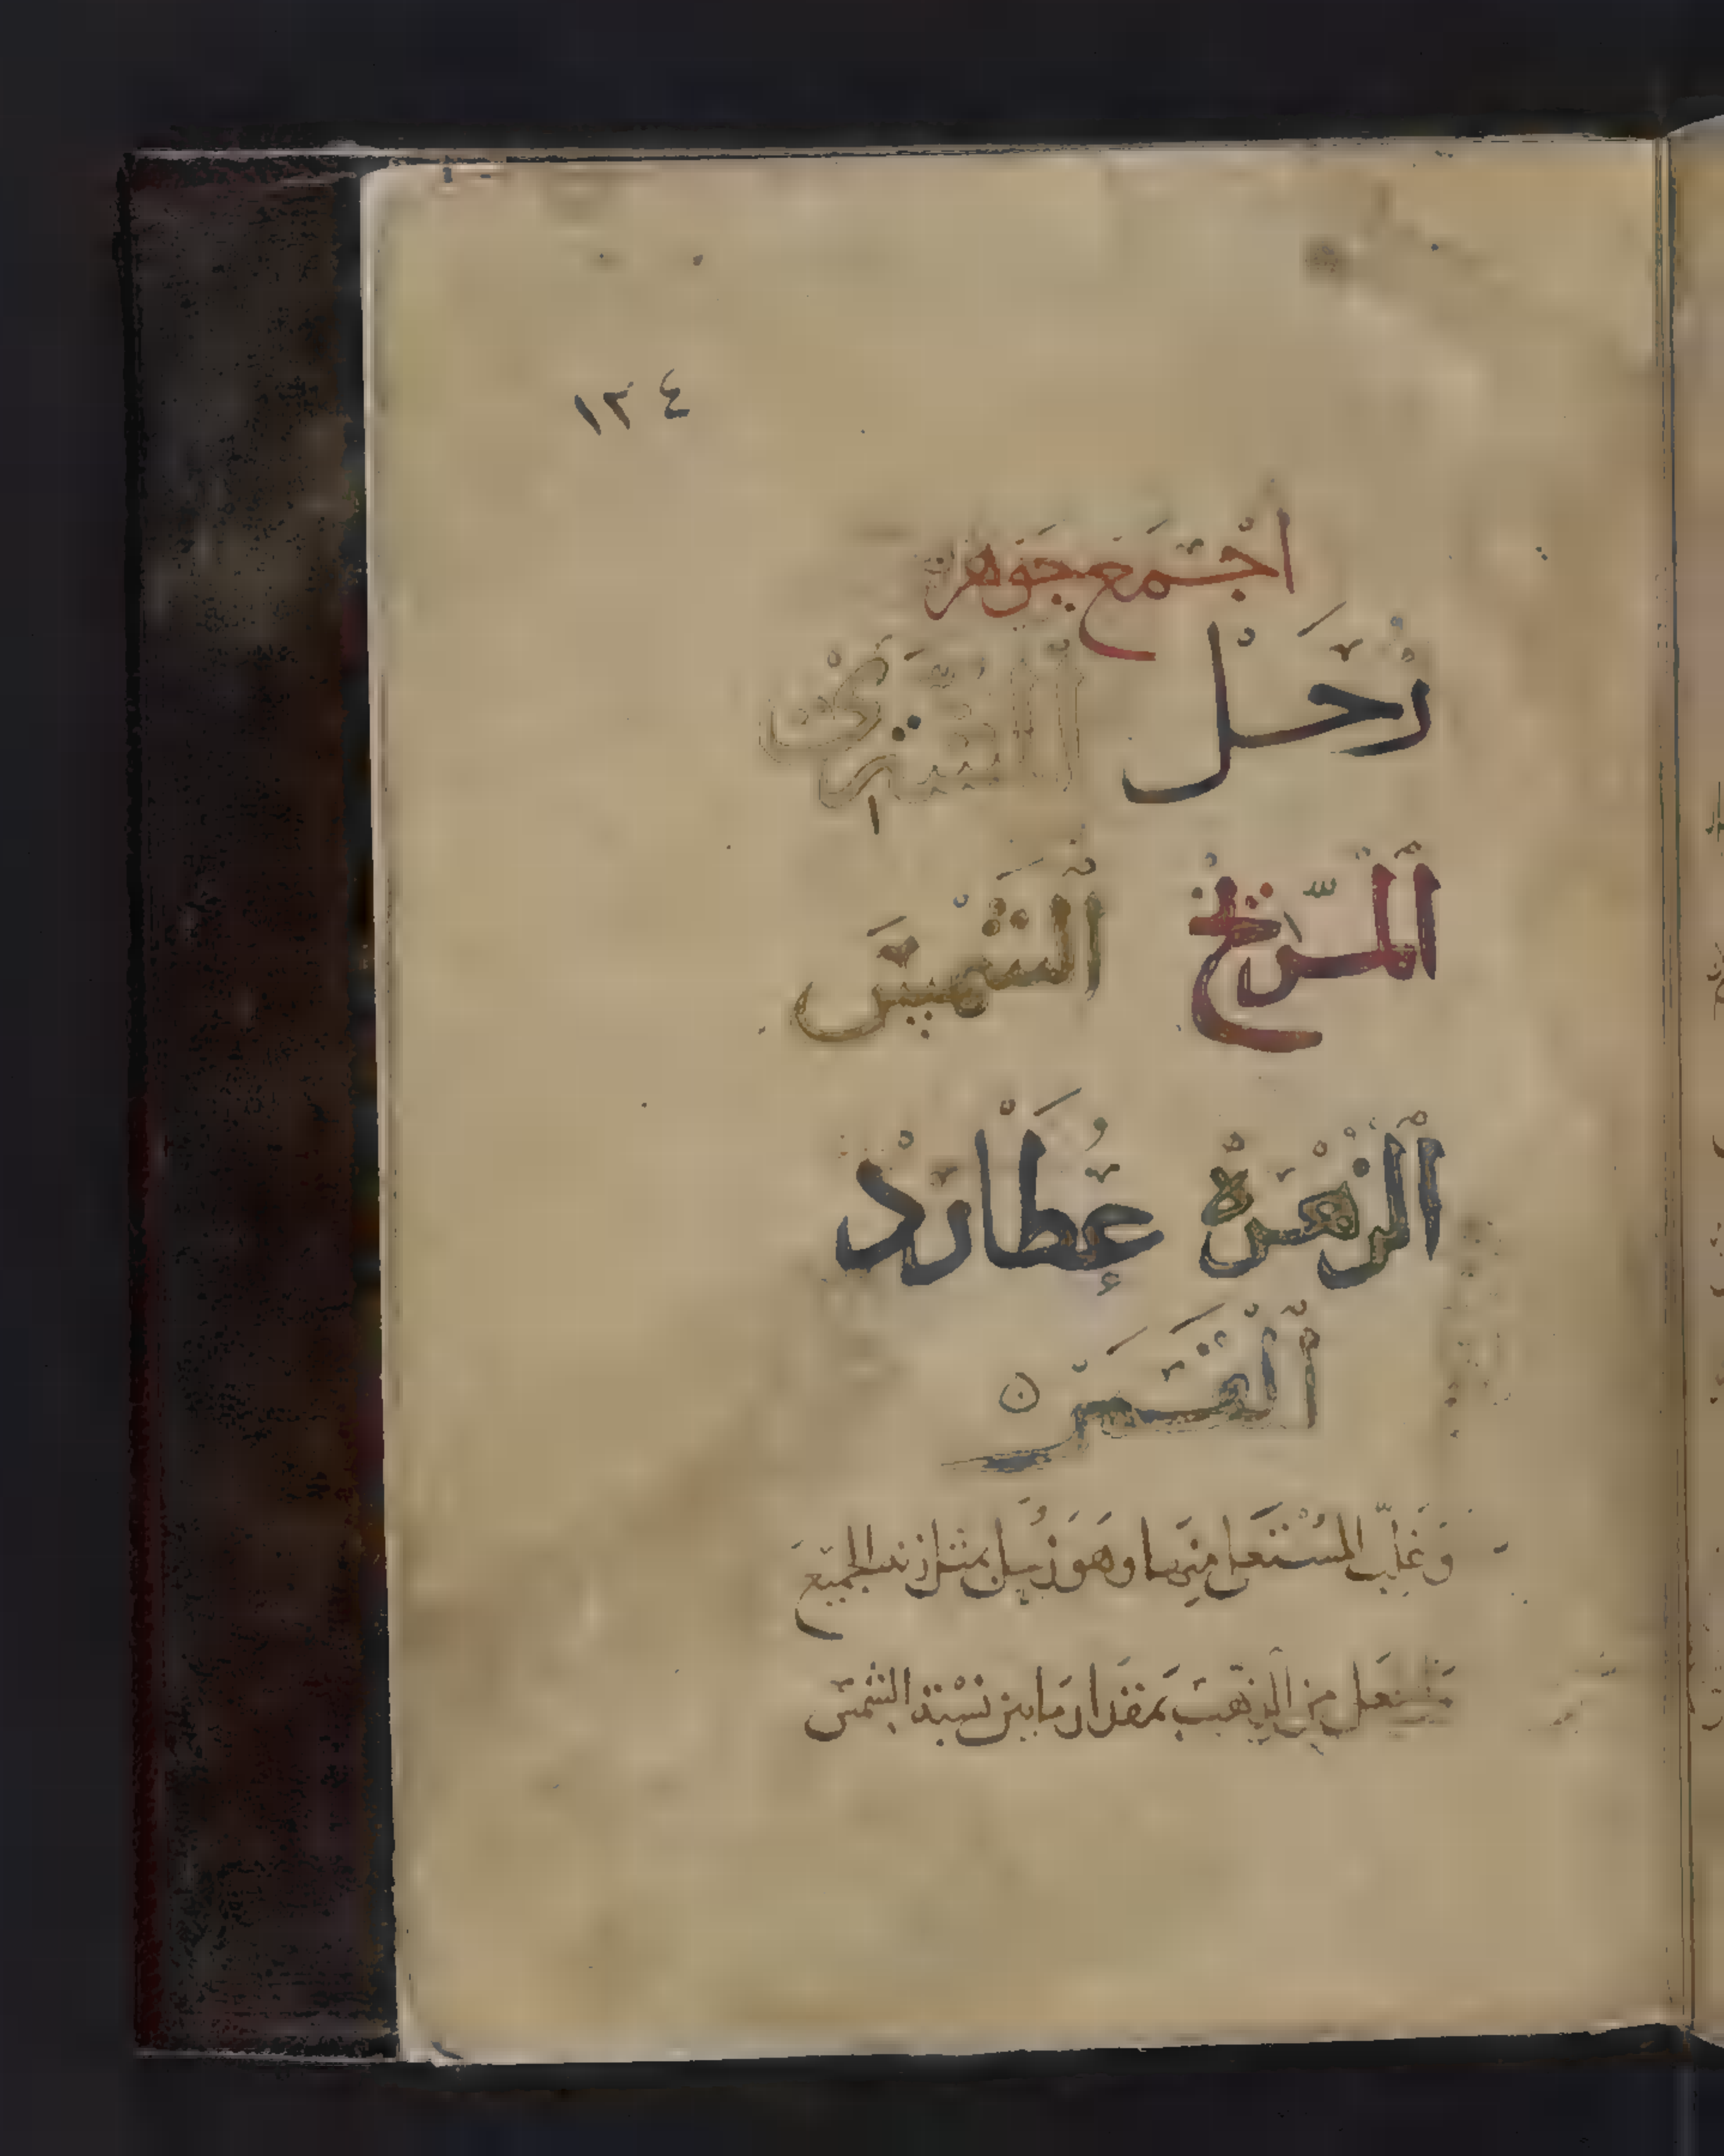 ١٢٤
اجْتَمَعَ جَوْهر
زُحَلْ الْمُشْتَرِيْ
الْمَرِّيْخْ الشَّمْسْ
الْزُهَرَةْ عُطَارِدْ
الْقَمَرْ ٥
وَغَلَبَ المُسْتَعمل منها وهو بمثل الجميع
من الذهب بمقدار ما بين الشمس